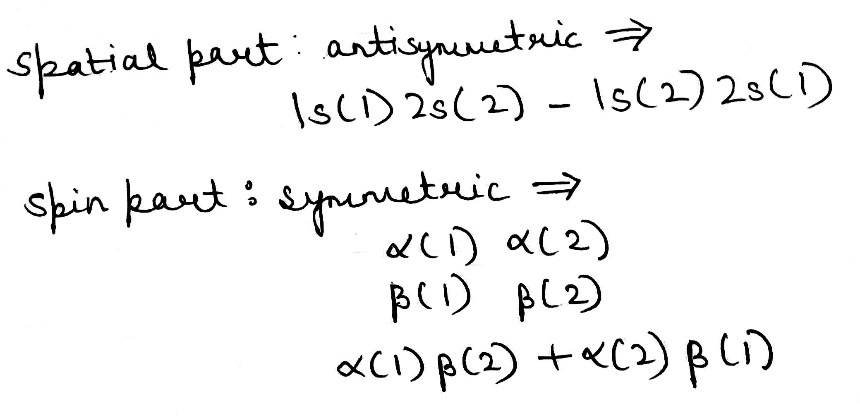 spatial part : antisymmetric ⇒
1s(1) 2s(2) - 1s(2) 2s(1)
spin part : symmetric ⇒
α(1) α(2)
β(1) β(2)
α(1) β(2) + α(2) β(1)